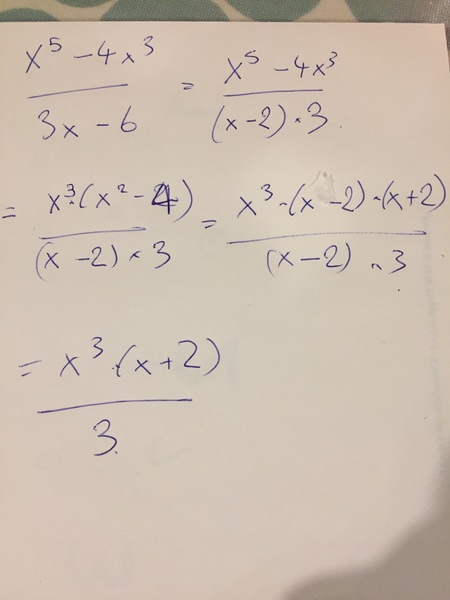 x⁵ - 4x³ / 3x - 6 = x⁵ - 4x³ / (x-2) · 3
= x³ · (x² - 4) / (x - 2) · 3 = x³ · (x - 2) · (x+2) / (x-2) · 3
= x³ · (x+2) / 3